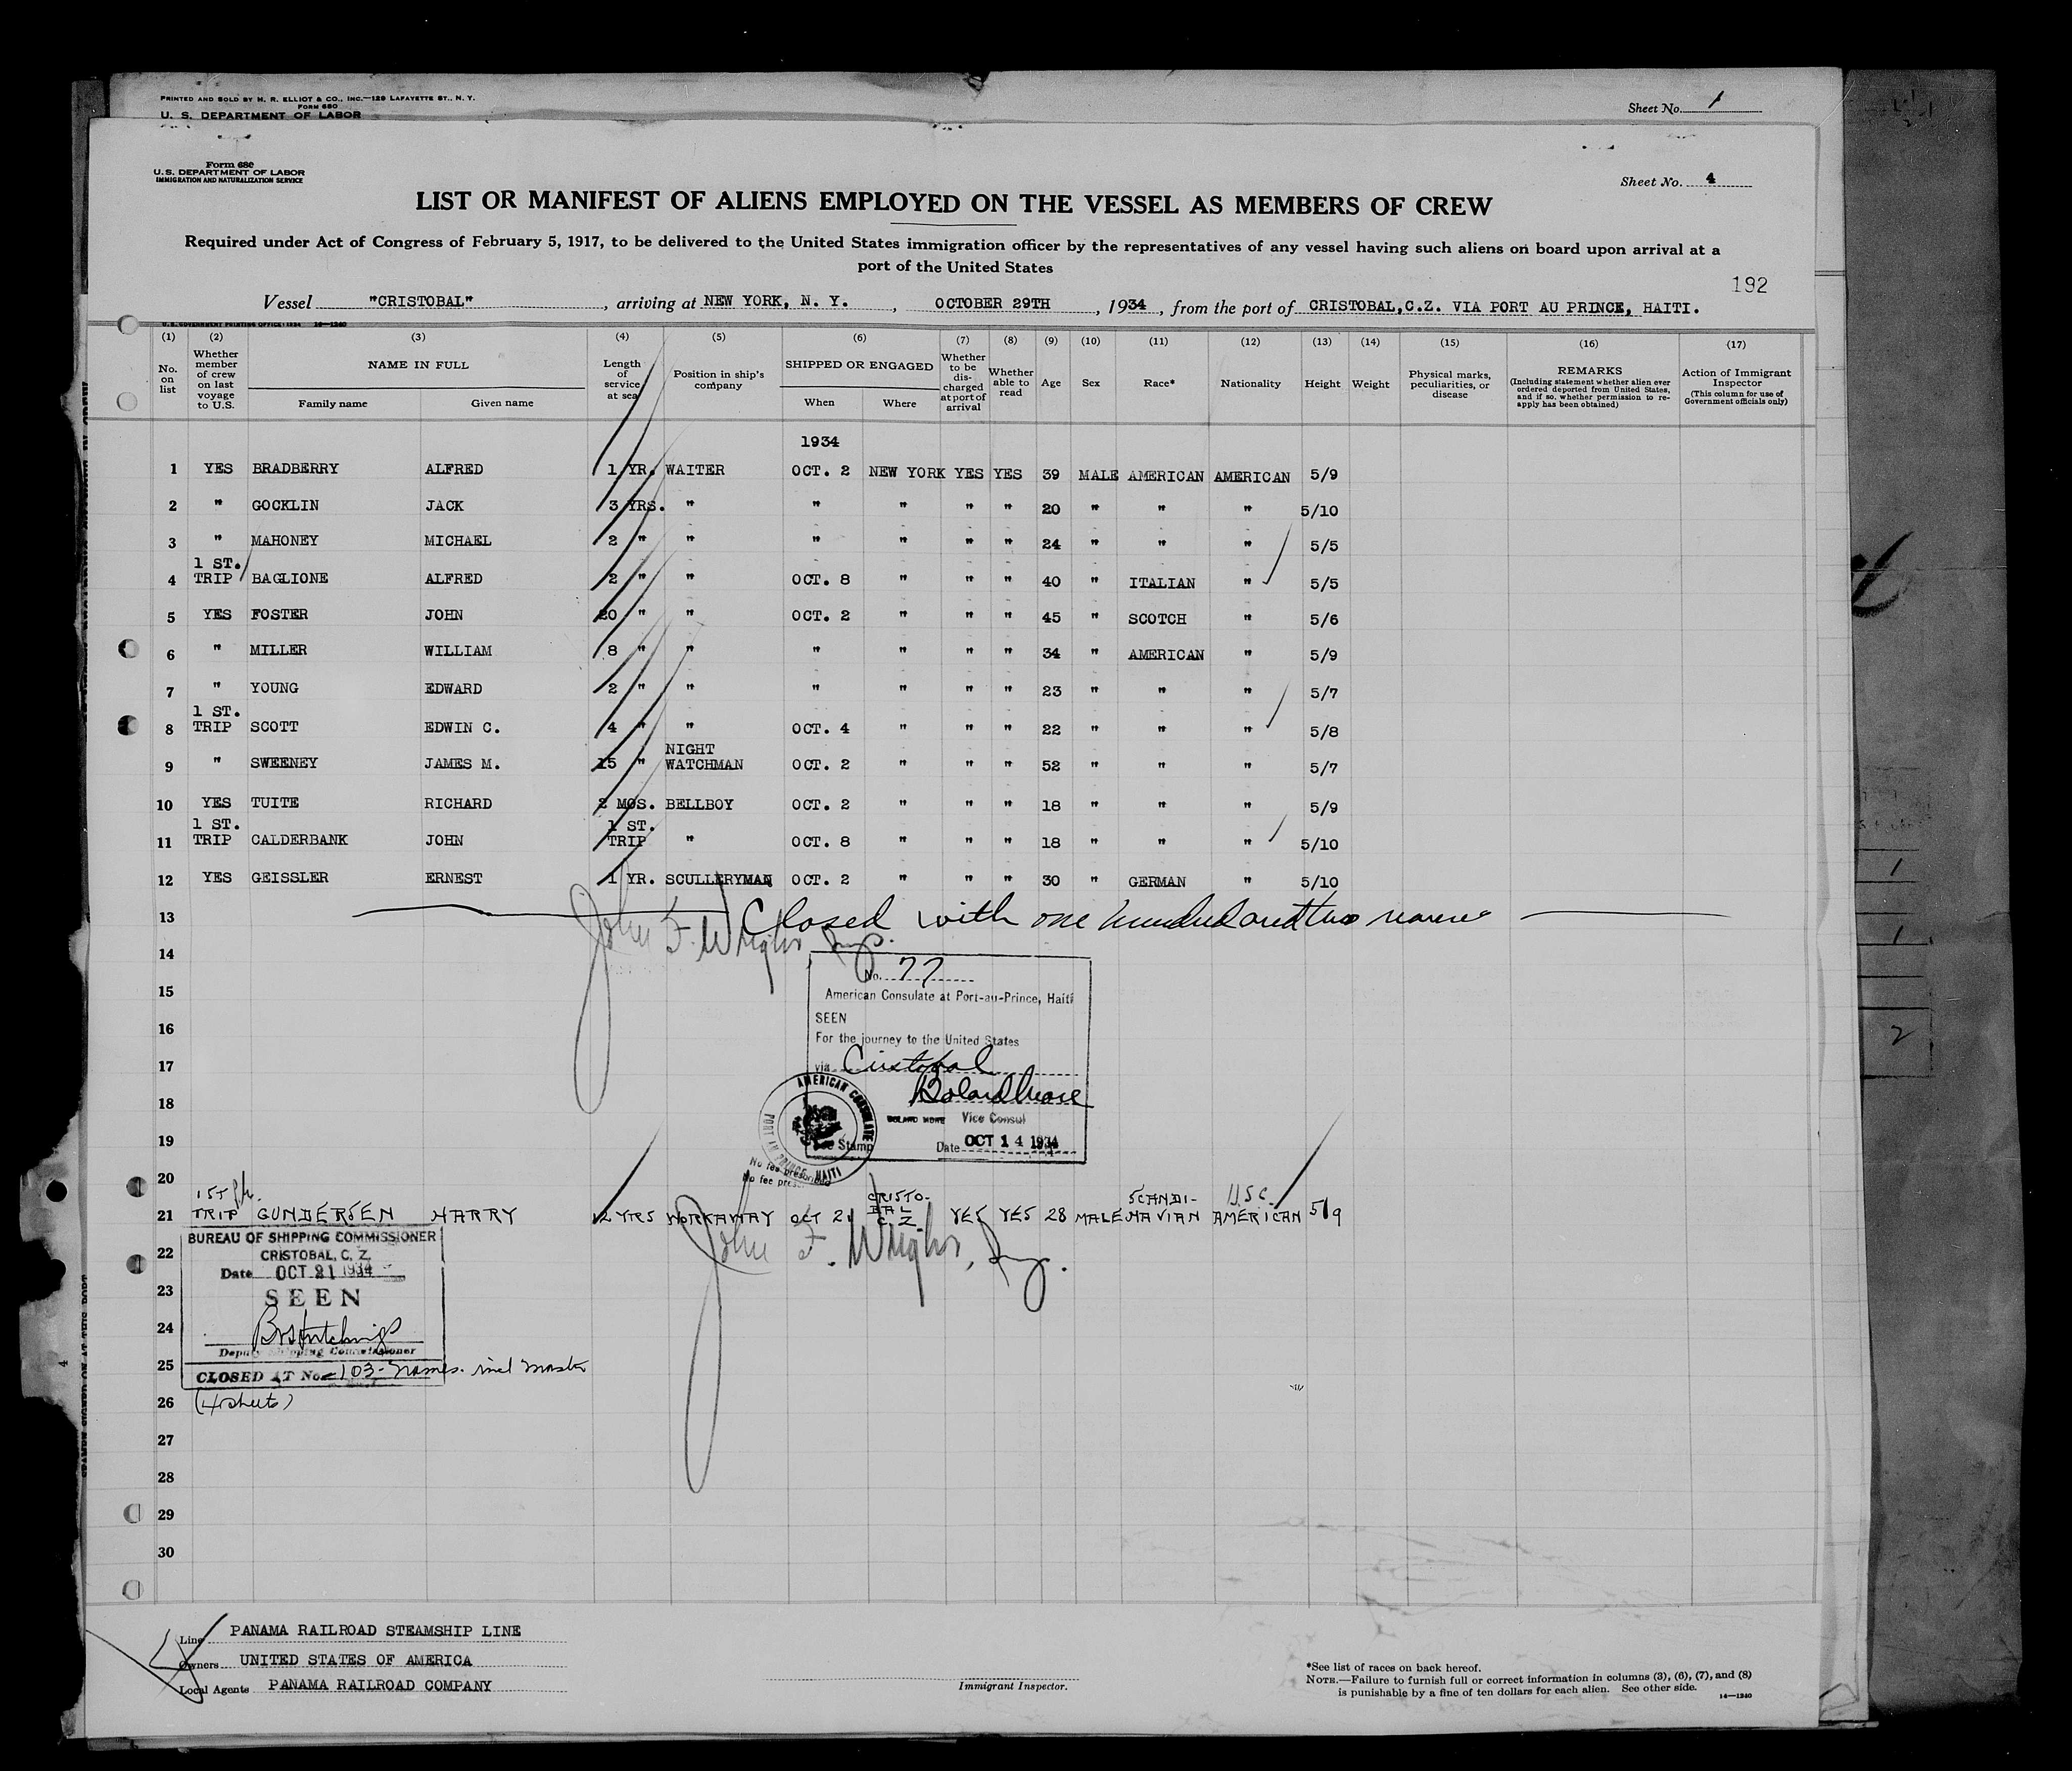 PRINTED AND SOLD BY H. R. ELLIOT & CO., INC.—129 LAFAYETTE ST., N. Y.
FORM 680
U. S. DEPARTMENT OF LABOR
Sheet No. 1
Form 680
U. S. DEPARTMENT OF LABOR
IMMIGRATION AND NATURALIZATION SERVICE
Sheet No. 4
LIST OR MANIFEST OF ALIENS EMPLOYED ON THE VESSEL AS MEMBERS OF CREW
Required under Act of Congress of February 5, 1917, to be delivered to the United States immigration officer by the representatives of any vessel having such aliens on board upon arrival at a
port of the United States
192
Vessel "CRISTOBAL", arriving at NEW YORK, N. Y., OCTOBER 29TH, 1934, from the port of CRISTOBAL,C.Z. VIA PORT AU PRINCE, HAITI.
U. S. GOVERNMENT PRINTING OFFICE: 1934 14—1240
(1) No. on list
(2) Whether member of crew on last voyage to U.S.
(3) NAME IN FULL Family name Given name
(4) Length of service at sea
(5) Position in ship's company
(6) SHIPPED OR ENGAGED When Where
(7) Whether to be discharged at port of arrival
(8) Whether able to read
(9) Age
(10) Sex
(11) Race*
(12) Nationality
(13) Height
(14) Weight
(15) Physical marks, peculiarities, or disease
(16) REMARKS (Including statement whether alien ever ordered deported from United States, and if so, whether permission to reapply has been obtained)
(17) Action of Immigrant Inspector (This column for use of Government officials only)
1934
1 YES BRADBERRY ALFRED 1 YR. WAITER OCT. 2 NEW YORK YES YES 39 MALE AMERICAN AMERICAN 5/9
2 " GOCKLIN JACK 3 YRS. " " " " " 20 " " " 5/10
3 " MAHONEY MICHAEL 2 " " " " " " 24 " " " 5/5
4 1 ST. TRIP BAGLIONE ALFRED 2 " " OCT. 8 " " " 40 " ITALIAN " 5/5
5 YES FOSTER JOHN 20 " " OCT. 2 " " " 45 " SCOTCH " 5/6
6 " MILLER WILLIAM 8 " " " " " " 34 " AMERICAN " 5/9
7 " YOUNG EDWARD 2 " " " " " " 23 " " " 5/7
8 1 ST. TRIP SCOTT EDWIN C. 4 " " OCT. 4 " " " 22 " " " 5/8
9 " SWEENEY JAMES M. 15 " NIGHT WATCHMAN OCT. 2 " " " 52 " " " 5/7
10 YES TUITE RICHARD 2 MOS. BELLBOY OCT. 2 " " " 18 " " " 5/9
11 1 ST. TRIP CALDERBANK JOHN 1 ST. TRIP " OCT. 8 " " " 18 " " " 5/10
12 YES GEISSLER ERNEST 1 YR. SCULLERYMAN OCT. 2 " " " 30 " GERMAN " 5/10
13 Closed with one hundred and two names
John F. Wright, Insp.
14
No. 77
15
American Consulate at Port-au-Prince, Haiti
SEEN
16
For the journey to the United States
17
via Cristobal
Boland More
18
BOLAND MORE Vice Consul
19
Date OCT 14 1934
AMERICAN CONSULATE
PORT AU PRINCE HAITI
Fee Stamp
No fee prescribed
No fee prescribed
20
21 1ST TRIP GUNDERSEN HARRY 12 YRS WORKAWAY OCT 21 CRISTOBAL C.Z. YES YES 28 MALE SCANDI-NAVIAN U.S.C. AMERICAN 5/9
John F. Wright, Insp.
BUREAU OF SHIPPING COMMISSIONER
22
CRISTOBAL, C. Z.
Date OCT 21 1934
23
SEEN
24
Deputy Shipping Commissioner
25
CLOSED AT No. 103 - names. incl master
26 (4 sheets)
27
28
29
30
Line PANAMA RAILROAD STEAMSHIP LINE
Owners UNITED STATES OF AMERICA
Local Agents PANAMA RAILROAD COMPANY
Immigrant Inspector.
*See list of races on back hereof.
NOTE.—Failure to furnish full or correct information in columns (3), (6), (7), and (8)
is punishable by a fine of ten dollars for each alien. See other side.
14—1240